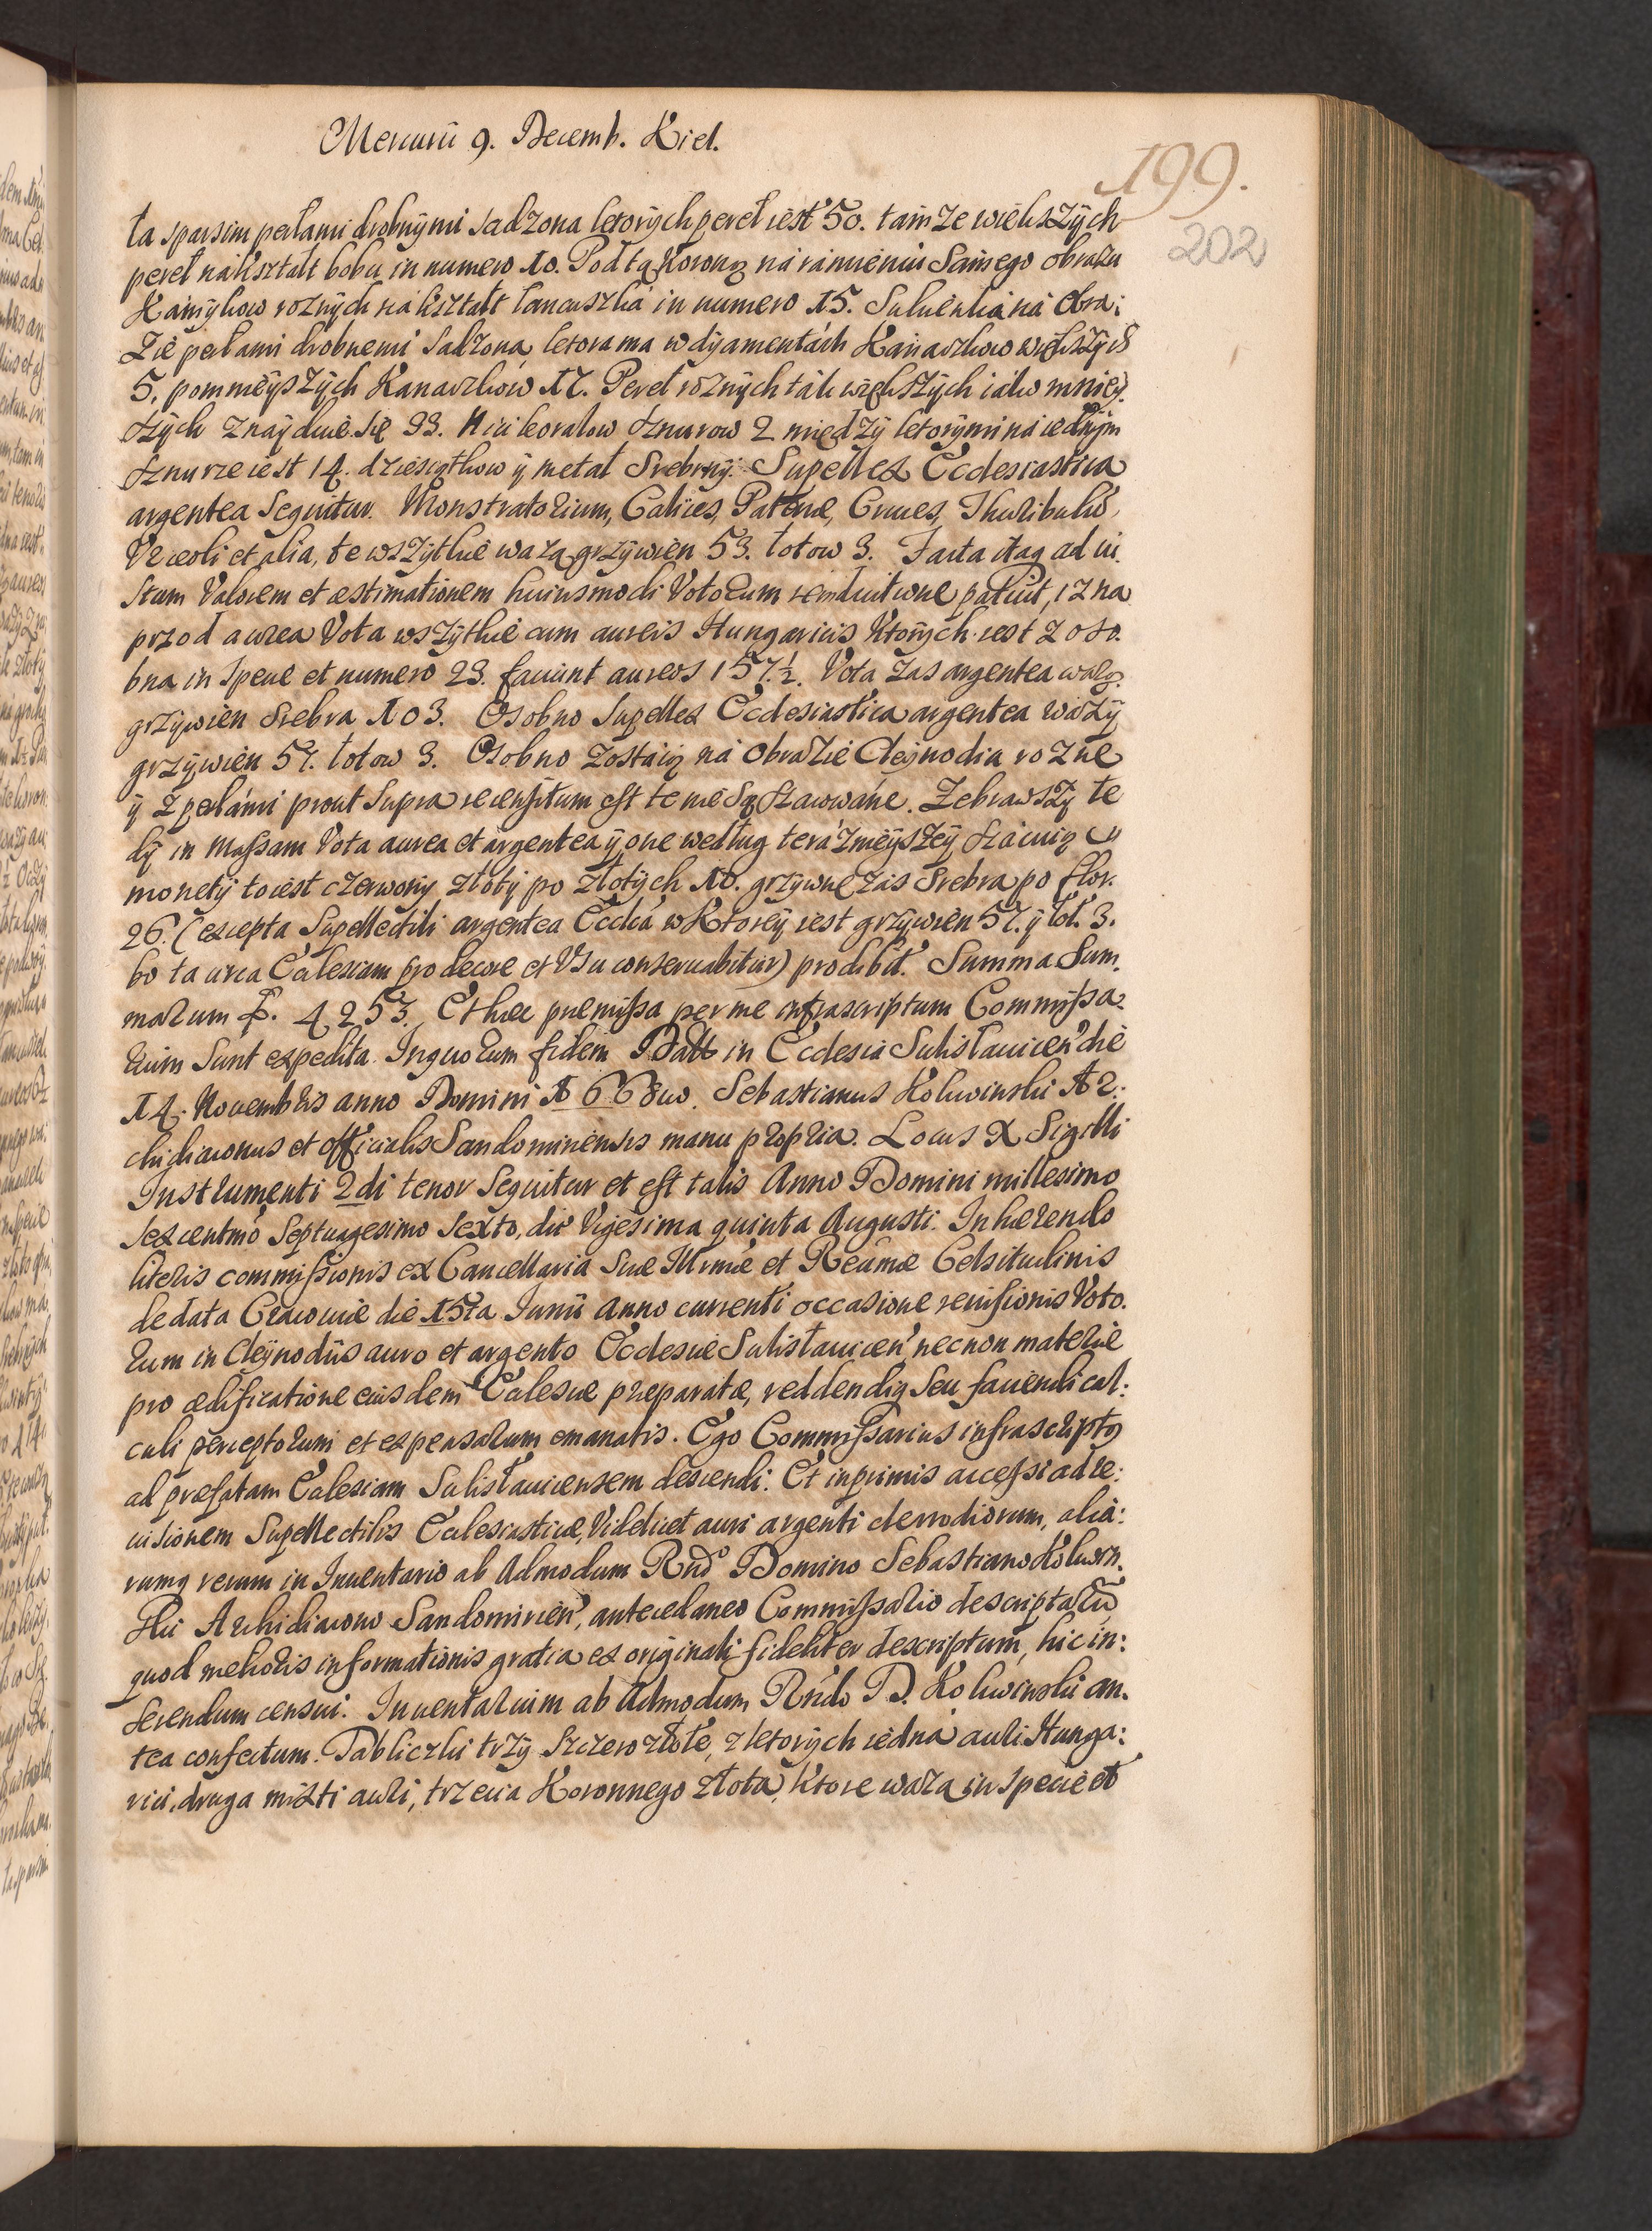 Mercurii 9. Decemb. Kiel.
199.
202
ta sparsim perłami drobnymi sadzona ktorych pereł iest 50. tamże większych
pereł nakształt bobu in numero 10. Pod tą Koroną na ramieniu Samego obrazu
Kamykow roznych na kształt łancuszka in numero 15. Sukienka na Obra:
zie perłami drobnemi Sadzona ktora ma w dyamentach Kanaczkow większych
5. pommeyszych Kanaczkow 17. Pereł roznych tak większych iako mniey.
szych znayduie się 93. Nici koralow sznurow 2 między ktorymi na iednym
sznurze iest 14. dziesiątkow y metal Srebrny. Supellex Ecclesiastica
argentea Sequitur. Monstratorium, Calices, Patenæ, Cruces, Thuribulũ,
Vrceoli et alia, te wszytkie ważą grzywien 53. łotow 3. Facta itaq ad iu.
stum Valorem et æstimationem huiusmodi Votorum reductione patuit, iz na
przod aurea Vota wszytkie cum aureis Hungaricis Ktorych iest z oso.
bna in Specie et numero 23. faciunt aureos 157½. Vota zas argentea ważą
grzywien Srebra 103. Osobno Supellex Ecclesiastica argentea waży
grzywien 57. łotow 3. Osobno zostaią na Obrazie Cleynodia rozne
y z perłami prout Supra recensitum est te nie są szacowane. Zebrawszy te
dy in Massam Vota aurea et argentea y one według teraznieyszey szacuiąc
monety to iest czerwony złoty po złotych 10. grzywnę zas Srebra po flor.
26. (excepta Supellectili argentea Eccliã w Ktorey iest grzywien 57. y łot. 3.
bo ta circa Ecclesiam pro decore et Vsu conseruabitur) prodibit. Summa Sum.
marum f. 4253. Et hæc præmissa per me infrascriptum Commissa.
rium Sunt expedita. In quorum fidem Datt in Ecclesia Sulisłauicen die
14. Nouembris anno Domini 1668uo. Sebastianus Kokwinski Ar.
chidiaconus et officialis Sandomiriensis manu propria. Locus X Sigilli
Instrumenti 2di tenor Sequitur et est talis Anno Domini millesimo
sexcentmo Septuagesimo Sexto, die Vigesima quinta Augusti. Inhærendo
literis commissionis ex Cancellaria Suæ Illrmæ et Reumæ Celsitudinis
de data Cracouiæ die 15ta Junii Anno currenti occasione reuisionis Voto.
rum in Cleynodiis auro et argento Ecclesiæ Sulisłauicen necnon materiæ
pro ædificatione eiusdem Ecclesiæ præparatæ, reddendiq Seu faciendi cal:
culi perceptorum et expensarum emanatis. Ego Commissarius infrascriptq
ad præfatam Ecclesiam Sulisłauicensem descendi. Et inprimis accessi ad re:
uisionem Supellectilis Ecclesiasticæ, Videlicet auri argenti clenodiorum, aliã:
rumq rerum in Inuentario ab Admodum Rndo Domino Sebastiano Kokwin.
ski Archidiacono Sandomirien, antecedaneo Commissario descriptarũ
quod melioris informationis gratia ex originali fideliter descriptum, hic in:
serendum censui. Inuentarium ab Admodum Rndo D. Kokwinski an.
tea confectum. Tabliczki trzy szczerozłote, z ktorych iedna auri Hunga:
rici, druga mixti auri, trzecia Koronnego złota, Ktore ważą in Specie et